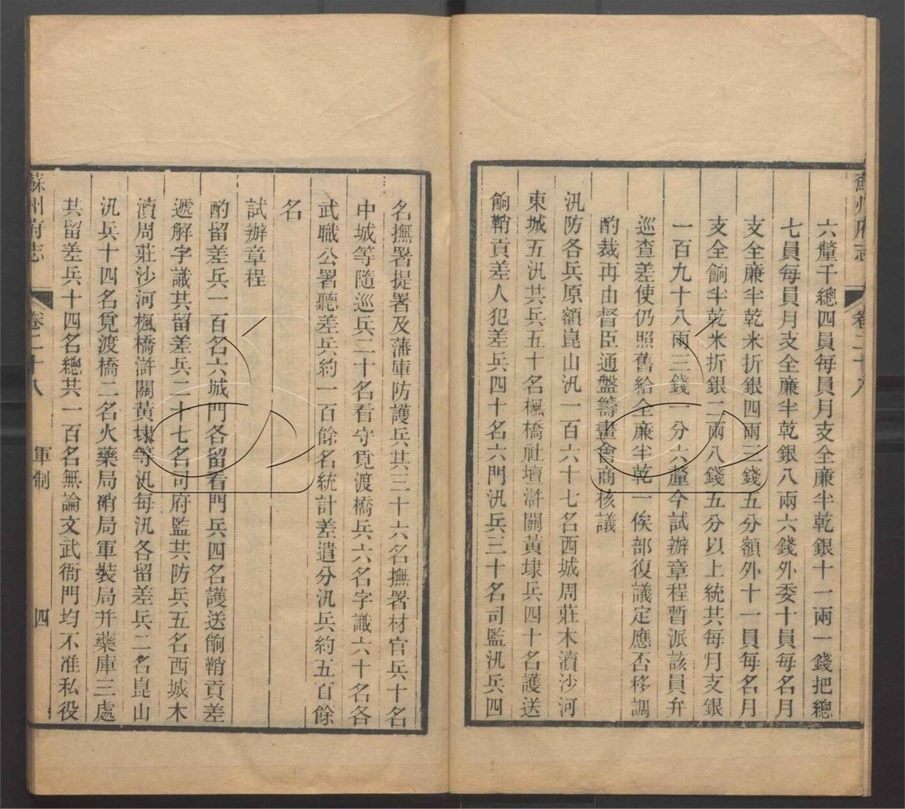 六釐千總四員每員月支全廉半乾銀十一兩一錢把總
七員每員月支全廉半乾銀八兩六錢外委十員每名月
支全廉半乾米折銀四兩三錢五分額外十一員每名月
支全餉半乾米折銀二兩八錢五分以上統共每月支銀
一百九十八兩三錢一分六釐今試辦章程暫派該員弁
巡查差使仍照舊給全廉半乾一俟部復議定應否移調
酌裁再由督臣通盤籌畫會商核議
汛防各兵原額崑山汛一百六十七名西城周莊木瀆沙河
東城五汛共兵五十名楓橋社壇滸關黃埭兵四十名護送
餉鞘貢差人犯差兵四十名六門汛兵三十名司監汛兵四
蘇州府志
卷二十八
名撫署提署及藩庫防護兵共三十六名撫署材官兵十名
中城等隨巡兵二十名看守覓渡橋兵六名字識六十名各
武職公署聽差兵約一百餘名統計差遣分汛兵約五百餘
名
試辦章程
酌留差兵一百名六城門各留看門兵四名護送餉鞘貢差
遞解字識共留差兵二十七名司府監共防兵五名西城木
瀆周莊沙河楓橋滸關黃埭等汛每汛各留差兵二名崑山
汛兵十四名覓渡橋二名火藥局硝局軍裝局并藥庫三處
共留差兵十四名總共一百名無論文武衙門均不准私役
蘇州府志
卷二十八
軍制
四